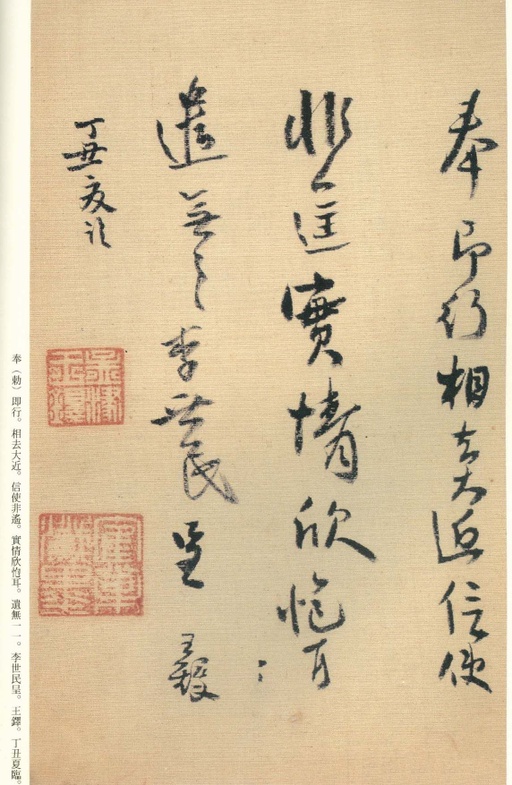 奉即行相去大近信使
非遙實情欣怡耳
遣無一一李世民呈 王鐸
丁丑夏臨
奉（勅）即行。相去大近。信使非遙。實情欣怡耳。遺無一一。李世民呈。王鐸。丁丑夏臨。